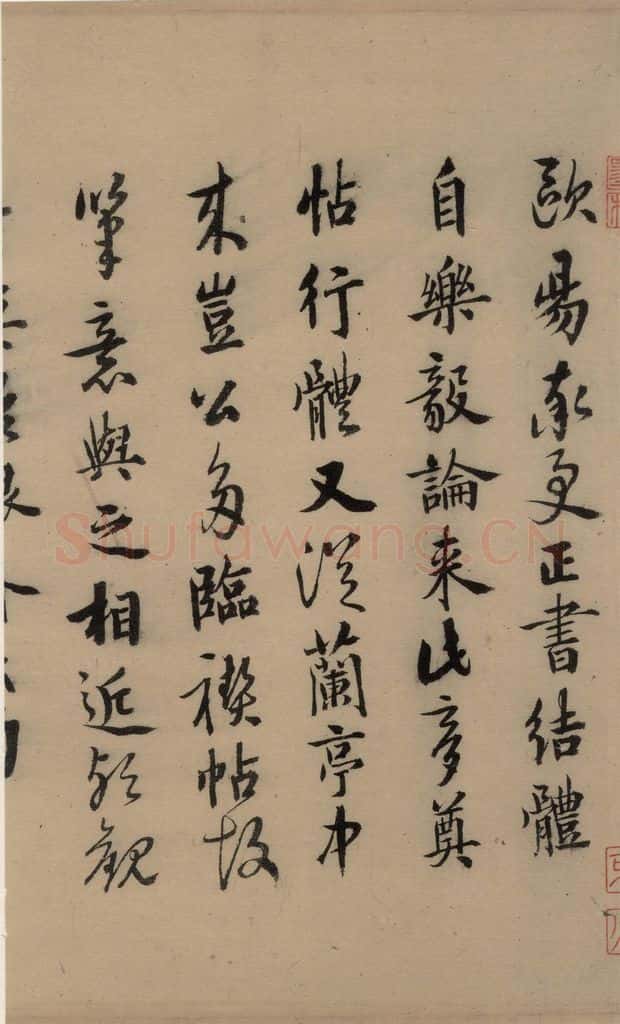 歐昜率更正書結體
自樂毅論来此夢奠
帖行體又從蘭亭中
来豈公多臨禊帖故
筆意與之相近歟觀
Shufawang.CN